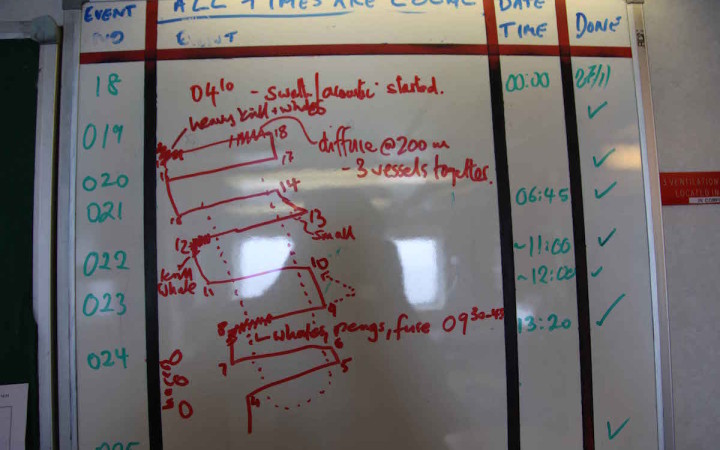 EVENT
ALL TIMES ARE LOCAL
DATE
NO
EVENT
TIME
DONE
18
04 10 - Swath/acoustic started.
00:00
27/11
heavy krill + whales
019
18
diffuse @ 200 m
17
- 3 vessels together.
020
14
06:45
021
13
small
12
~11:00
022
krill
whale
11
10
~12:00
023
9
8
whales, pengs, fuse 09 30-45
13:20
024
7
6
5
4
025